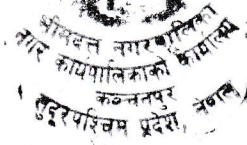 भीमदत्त नगरपालिका
नगर कार्यपालिकाको कार्यालय
कञ्चनपुर
सुदूरपश्चिम प्रदेश, नेपाल